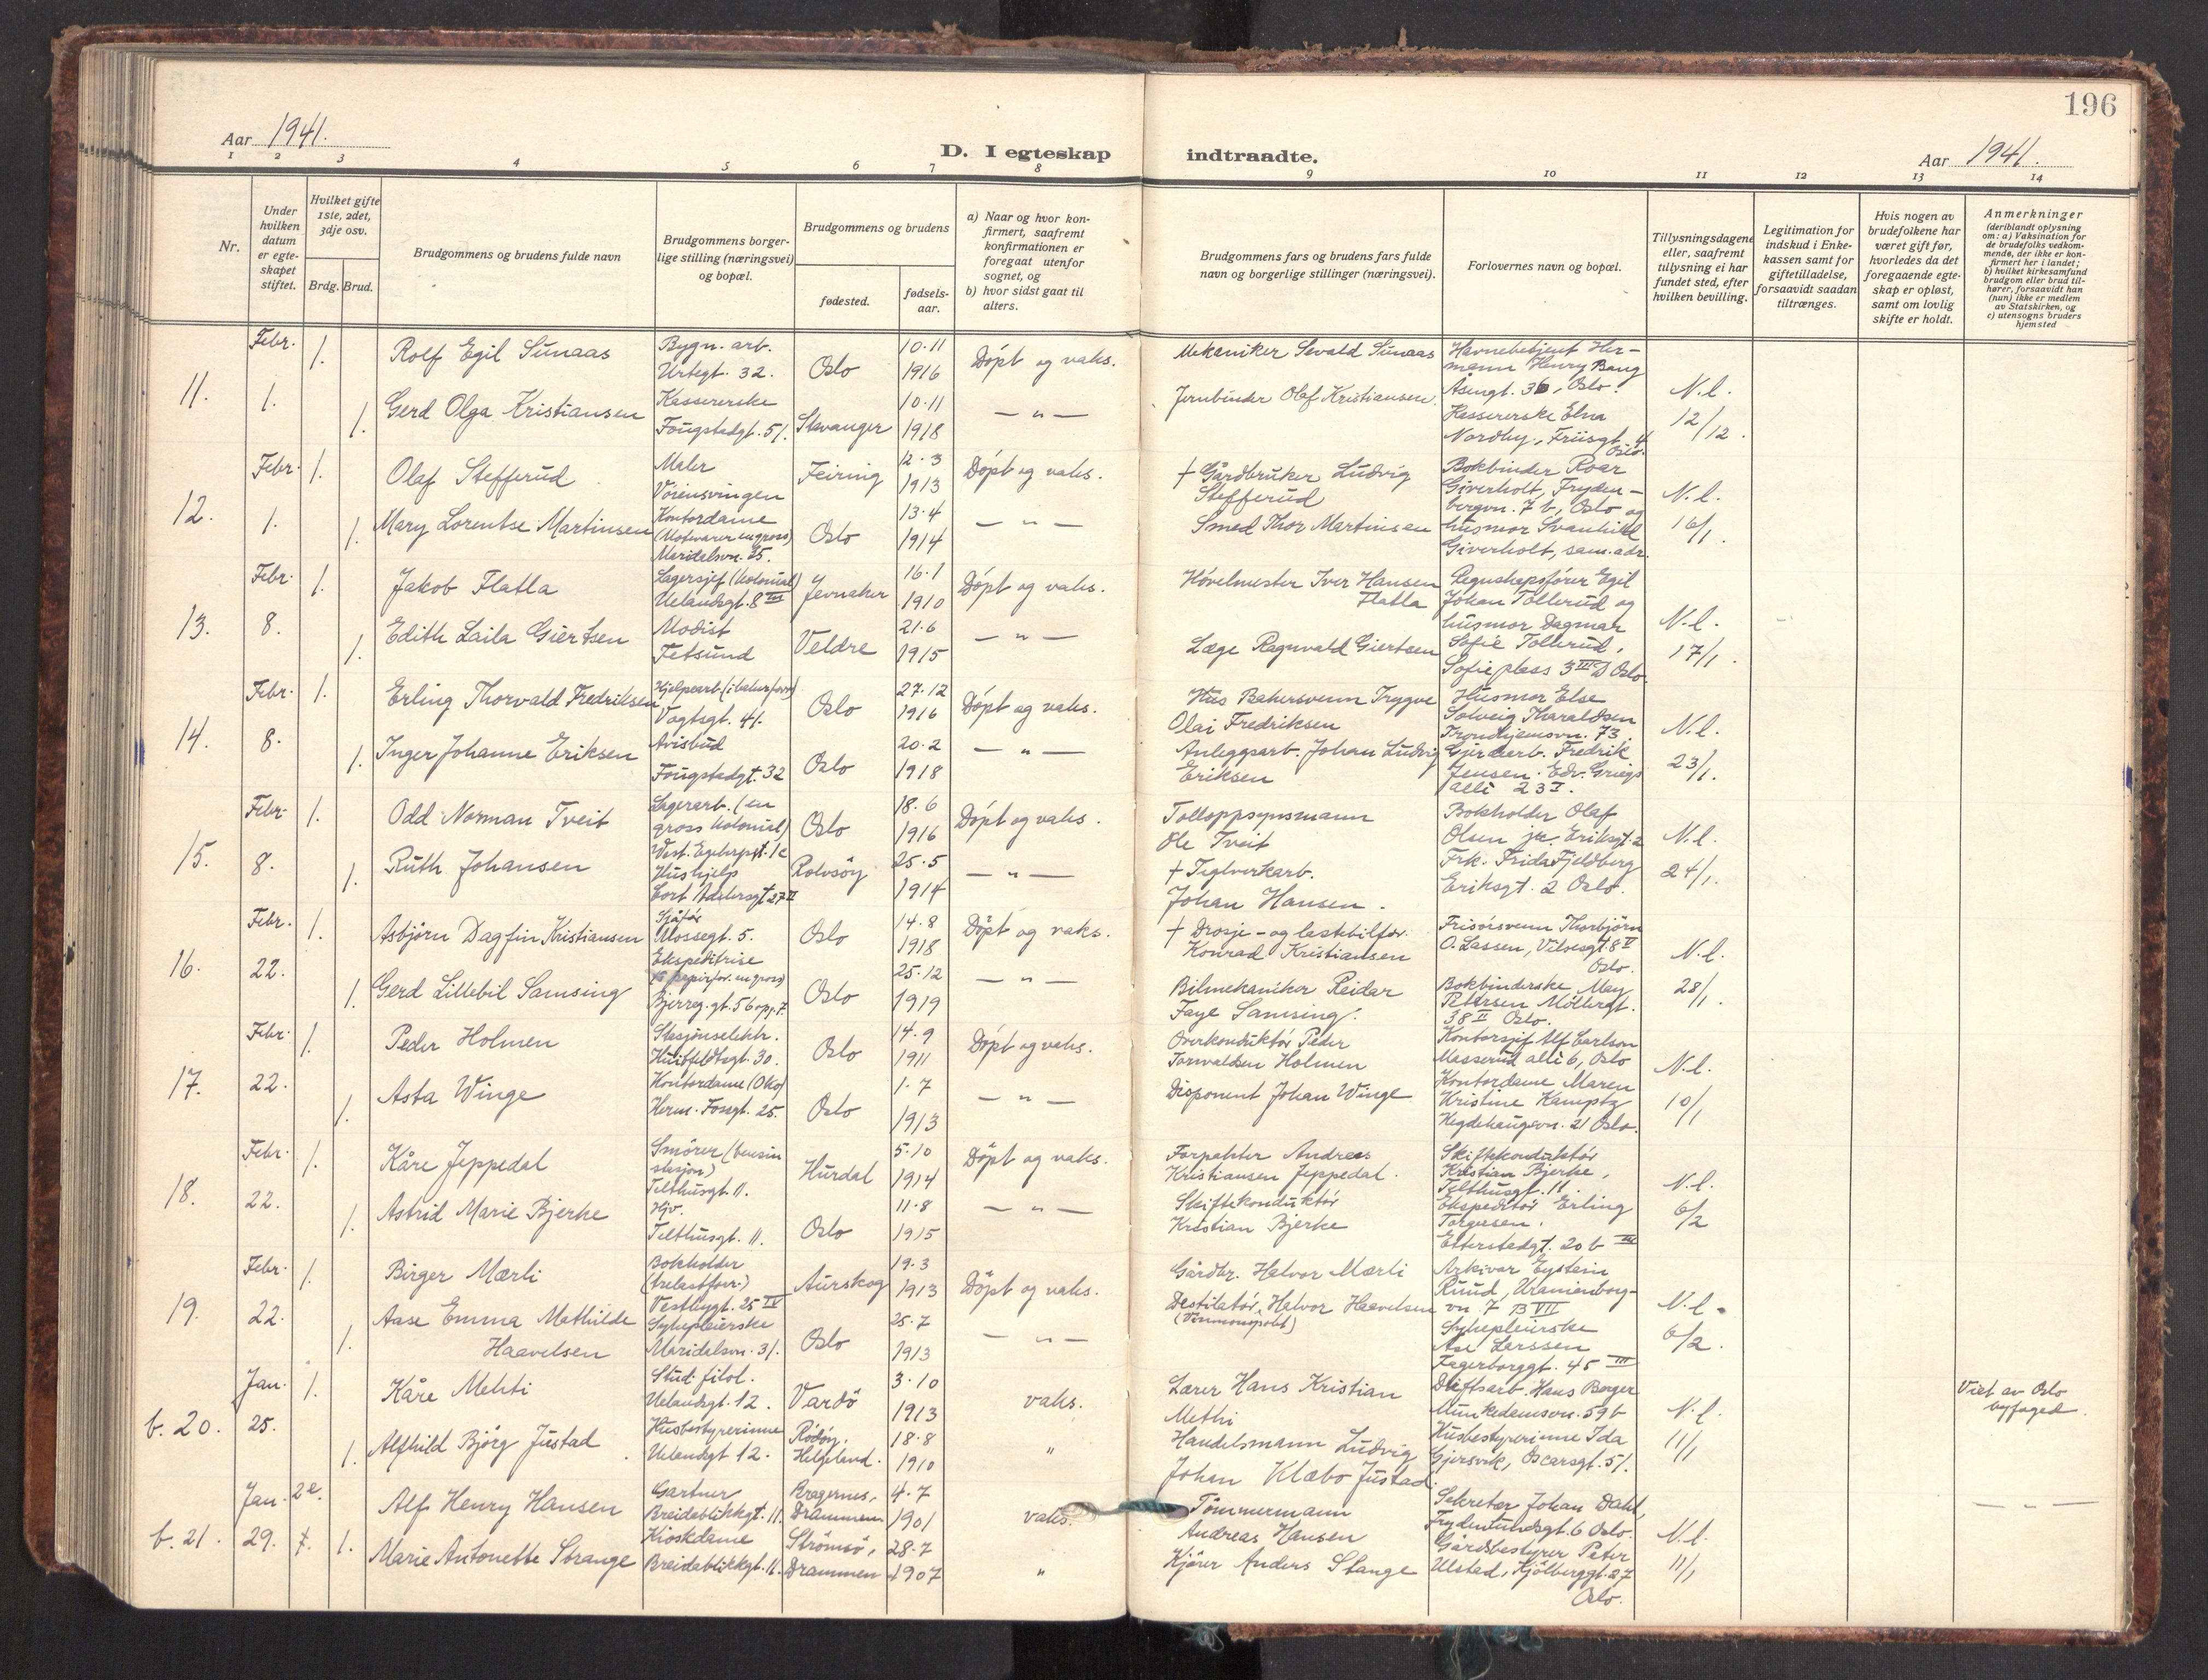 196
Aar 1941.
D. I egteskap indtraadte.
Aar 1941.
1 2 3 4 5 6 7 8 9 10 11 12 13 14
Nr.
Under hvilken datum er egteskapet stiftet.
Hvilket gifte 1ste, 2det, 3dje osv.
Brdg. Brud.
Brudgommens og brudens fulde navn
Brudgommens borgerlige stilling (næringsvei) og bopæl.
Brudgommens og brudens
fødested.
fødselsaar.
a) Naar og hvor konfirmert, saafremt konfirmationen er foregaat utenfor sognet, og
b) hvor sidst gaat til alters.
Brudgommens fars og brudens fars fulde navn og borgerlige stillinger (næringsvei).
Forlovernes navn og bopæl.
Tillysningsdagene eller, saafremt tillysning ei har fundet sted, efter hvilken bevilling.
Legitimation for indskud i Enkekassen samt for giftetilladelse, forsaavidt saadan tiltrænges.
Hvis nogen av brudefolkene har været gift før, hvorledes da det foregaaende egteskap er opløst, samt om lovlig skifte er holdt.
Anmerkninger (deriblandt oplysning om: a) Vaksination for de brudefolks vedkommende, der ikke er konfirmert her i landet; b) hvilket kirkesamfund brudgom eller brud tilhører, forsaavidt han (hun) ikke er medlem av Statskirken, og c) utensogns bruders hjemsted
11. Febr. 1. 1. Rolf Egil Sunaas
Bygn. arb. Urtegt. 32.
Oslo 10.11 1916
Döpt og vaks.
Mekaniker Sevald Sunaas
Havnebetjent Hermann Henry Bang Åsengt. 36, Oslo.
N.l. 12/12.
1. Gerd Olga Kristiansen
Kassererske Fougstadgt. 51.
Stavanger 10.11 1918
— " —
Jernbinder Olaf Kristiansen.
Kassererske Elna Nordby, Friisgt. 4 Oslo.
12. Febr. 1. 1. Olaf Stefferud
Maler Vöiensvingen
Feiring 12.3 1913
Döpt og vaks.
+ Gårdbruker Ludvig Stefferud
Bokbinder Roar Giverholt, Frydenbergvn. 7 b, Oslo og
N.l. 16/1.
1. Mary Lorentse Martinsen
Kontordame (Motevarer engros) Maridalsvn. 25.
Oslo 13.4 1914
— " —
Smed Thor Martinsen
husmor Svanhild Giverholt, sam. adr.
13. Febr. 8. 1. Jakob Flatla
Lagersjef (kolonial) Uelandsgt. 8 III
Jevnaker 16.1 1910
Döpt og vaks.
Hövelmester Iver Hansen Flatla
Regnskapsförer Egil Johan Tollerud og
N.l. 17/1.
1. Edith Laila Giertsen
Modist Fetsund
Veldre 21.6 1915
— " —
Læge Ragnvald Giertsen
husmor Dagmar Sofie Tollerud, Sofie plass 3 III D Oslo.
14. Febr. 8. 1. Erling Thorvald Fredriksen
Hjelpearb. Vogtsgt. 41.
Oslo 27.12 1916
Döpt og vaks.
Bakersvenn Trygve Olai Fredriksen
Husmor Else Solveig Tharaldsen Trondhjemsvn. 73
N.l. 23/1.
1. Inger Johanne Eriksen
Avisbud Fougstadgt. 32
Oslo 20.2 1918
— " —
Anleggsarb. Johan Ludvig Eriksen
Fredrik Jensen. Edv. Griegs allé 23 I.
15. Febr. 8. 1. Odd Norman Tveit
Lagerarb. (en gross kolonial)
Oslo 18.6 1916
Döpt og vaks.
Tolloppsynsmann Ole Tveit
Bokholder Olaf Olsen jr. Eriksgt. 2
N.l. 24/1.
1. Ruth Johansen
Hushjelp Cort Adelersgt 27 II
Rolvsöy 25.5 1914
— " —
+ Teglverkarb. Johan Hansen.
Frk. Frida Fjeldberg Eriksgt. 2 Oslo.
16. Febr. 22. 1. Asbjörn Dagfin Kristiansen
Sjåför Mossegt. 5.
Oslo 14.8 1918
Döpt og vaks.
+ Drosje- og lastebilför. Konrad Kristiansen
Frisörsvenn Thorbjörn O. Lassen, Vibesgt. 8 V Oslo.
N.l. 28/1.
1. Gerd Lillebil Samsing
Ekspeditrise Bjerreg.gt. 56 opp. 7.
Oslo 25.12 1919
— " —
Bilmekaniker Reidar Faye Samsing.
Bokbinderske May Pettersen Möllergt. 38 II Oslo.
17. Febr. 22. 1. Peder Holmen
Stasjonselektr. Huitfeldtsgt. 30.
Oslo 14.9 1911
Döpt og vaks.
Overkonduktör Peder Torvaldsen Holmen
Kontorsjef Alf Carlson Masserud allé 6, Oslo
N.l. 10/1
1. Asta Winge
Kontordame (Oko) Herm. Fossgt. 25.
Oslo 1.7 1913
— " —
Disponent Johan Winge
Kontordame Maren Kristine Kamptz Hegdehaugsvn. 21 Oslo.
18. Febr. 22. 1. Kåre Jeppedal
Smörer (bensin stasjon) Telthusgt. 11.
Hurdal 5.10 1914
Döpt og vaks.
Forpakter Andreas Kristiansen Jeppedal.
Skiftekonduktör Kristian Bjerke, Telthusgt. 11.
N.l. 6/2
1. Astrid Marie Bjerke
Hjv. Telthusgt. 11.
Oslo 11.8 1915
— " —
Skiftekonduktör Kristian Bjerke
Ekspeditör Erling Torgersen. Etterstadgt. 20 b III
19. Febr. 22. 1. Birger Mærli
Bokholder (trelastforr.) Vestbygt. 25 IV
Aurskog 19.3 1913
Döpt og vaks.
Gårdbr. Halvor Mærli
Arkivar Eystein Ruud, Uranienborgvn. 7 B VII
N.l. 6/2.
1. Aase Emma Mathilde Haavelsen
Sykepleierske Maridalsvn. 31.
Oslo 25.7 1913
— " —
Destilatör Halvor Haavelsen (Vinmonopolet)
Sykepleierske Åse Larssen Fagerborggt. 45 III
b. 20. Jan. 25. 1. Kåre Mehti
Stud. filol. Uelandsgt. 12.
Vardö 3.10 1913
vaks.
Lærer Hans Kristian Methi
Driftsarb. Hans Borger Munkedamsvn. 59 b
N.l. 11/1
Viet av Oslo byfoged.
1. Alfhild Björg Justad
Husbestyrerinne Uelandsgt 12.
Rödöy, Helgeland. 18.8 1910
"
Handelsmann Ludvig Johan Klæbo Justad.
Husbestyrerinne Ida Gjersvik, Oscarsgt. 51.
b. 21. Jan. 29. 2e. Alf Henry Hansen
Gartner Breidablikkgt. 11.
Bragernes, Drammen 4.7 1901
vaks.
Tömmermann Andreas Hansen
Sekretær Johan Dahl, Frydenlundsgt. 6 Oslo.
N.l. 11/1
— " —
1. Marie Antonette Strange
Kioskdame Breidablikkgt. 11.
Strömsö, Drammen 28.7 1907
"
Kjörer Anders Stange
Gårdsbestyrer Peter Ulstad, Kjölberggt. 27 Oslo.